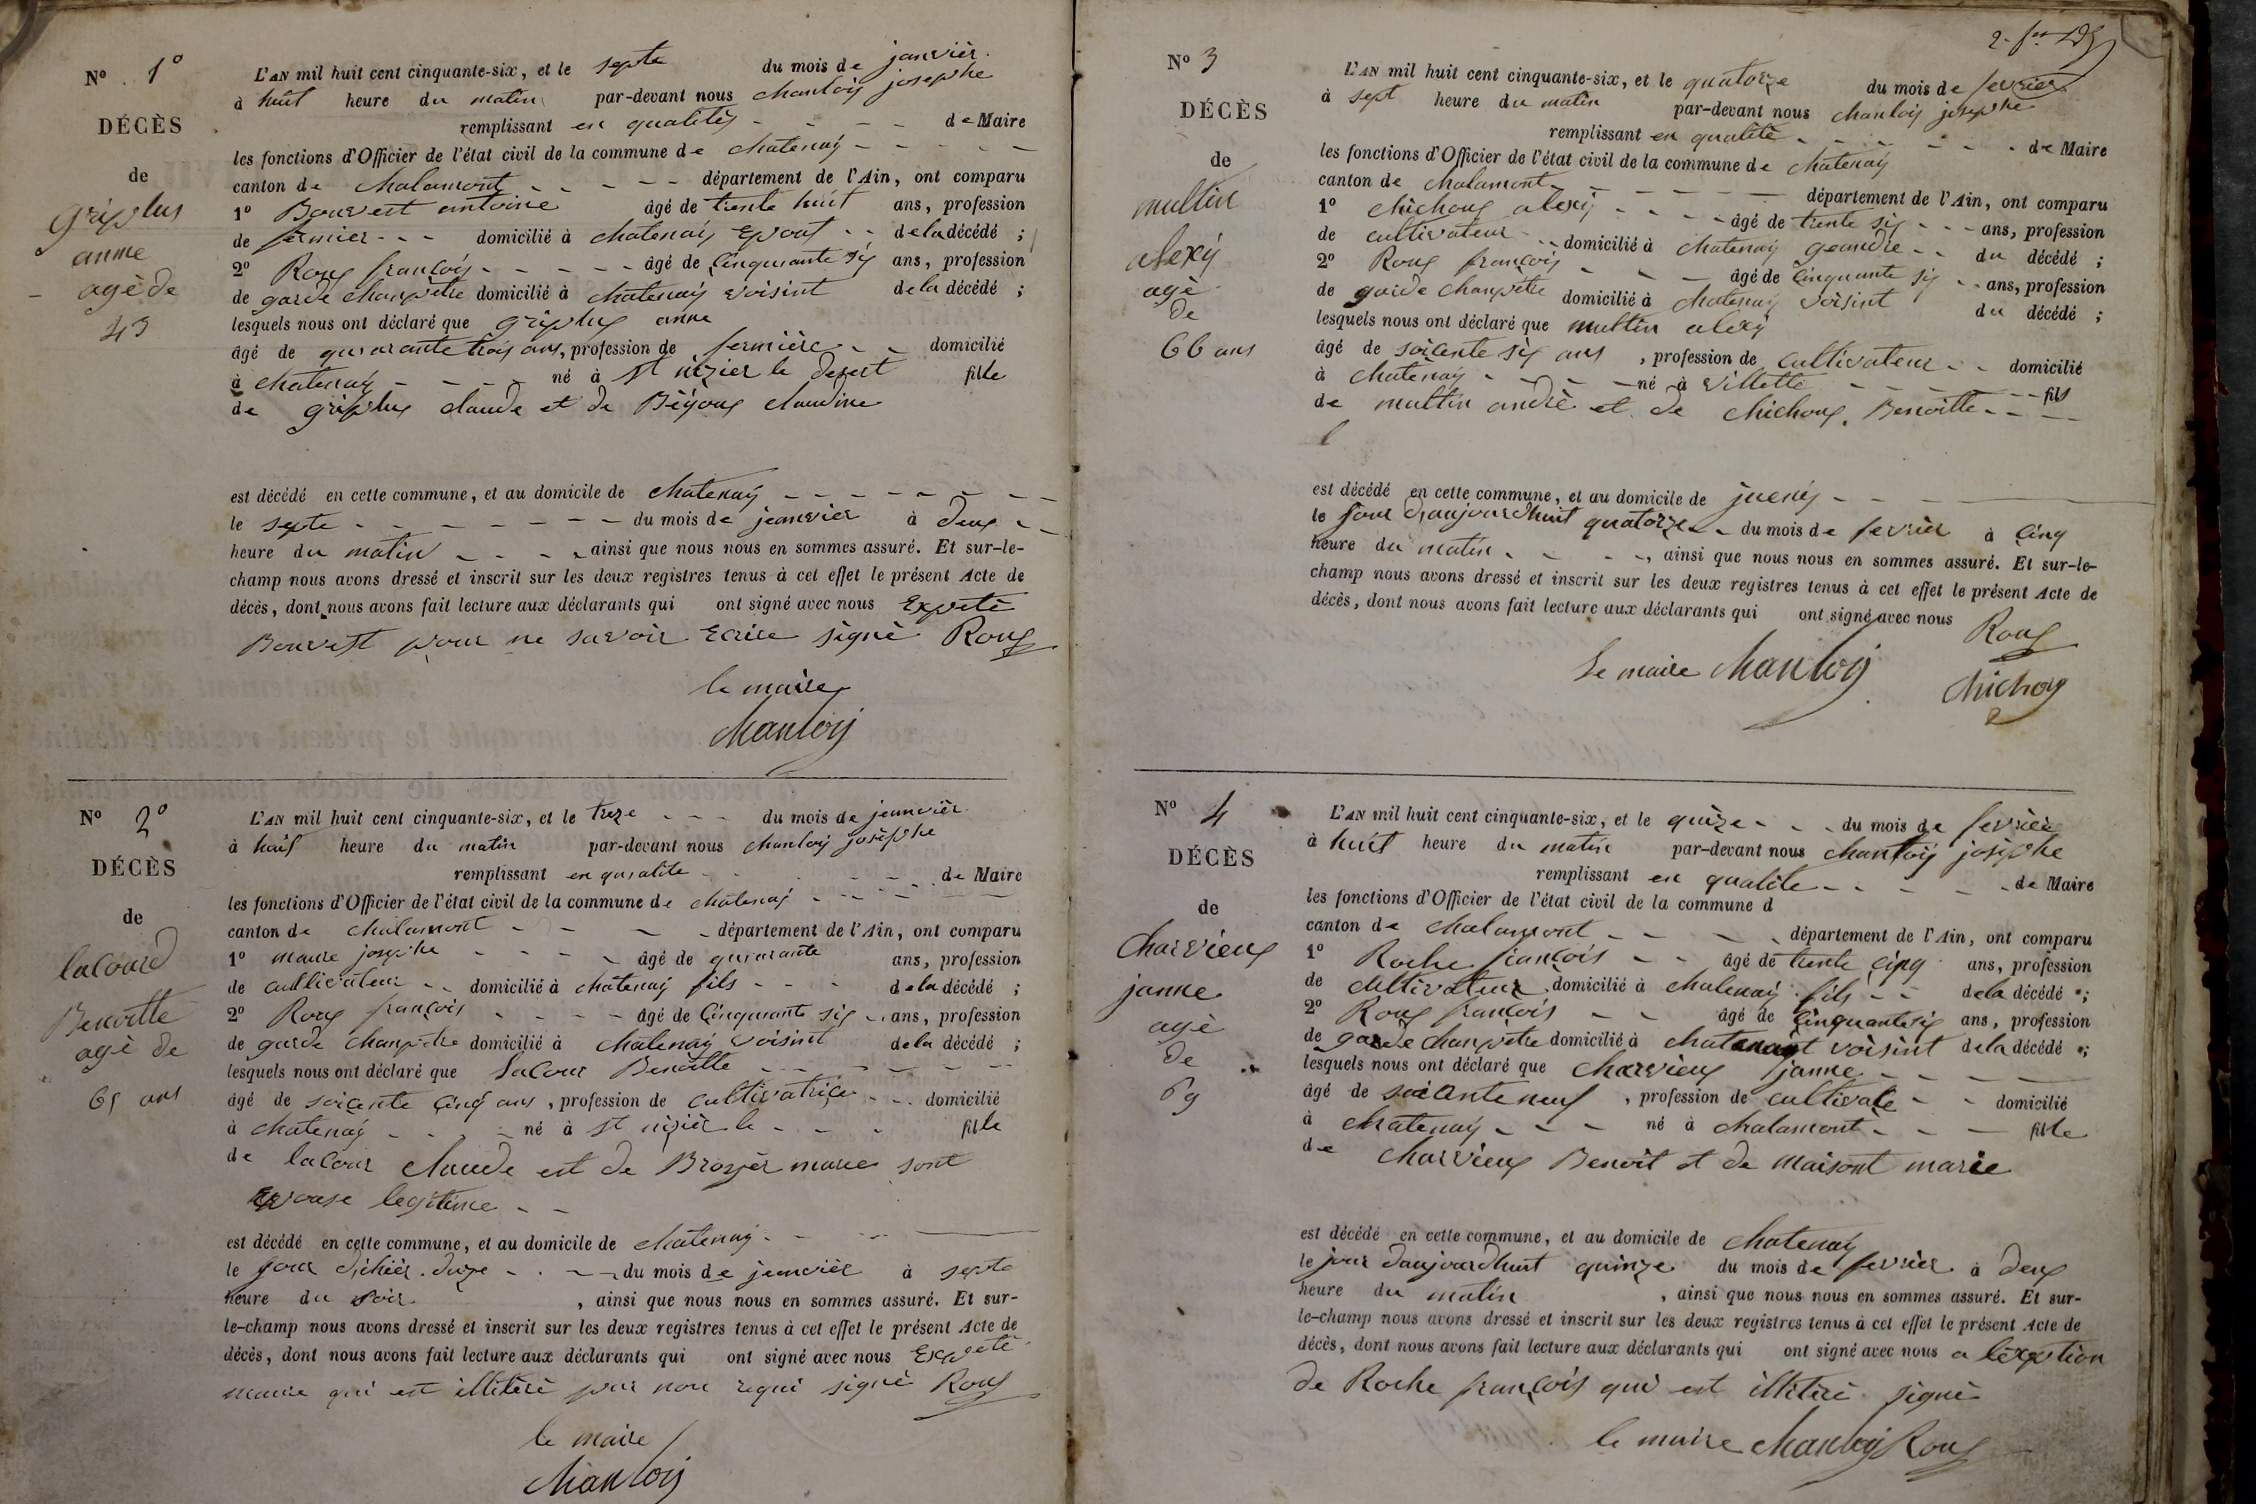 Nº 1º
DÉCÈS
de
griphus
anne
agè de
43
L'AN mil huit cent cinquante-six, et le septe du mois de janvièr.
à huit heure du matin par-devant nous chanloy josephe
remplissant en qualitès de Maire
les fonctions d'Officier de l'état civil de la commune de chatenay
canton de chalamont département de l'Ain, ont comparu
1º Bouvest antoine âgé de trente huit ans, profession
de fermier domicilié à chatenay Epout de la décédé ;
2º Roux françois âgé de Cinquante six ans, profession
de garde champètre domicilié à chatenay voisint de la décédé ;
lesquels nous ont déclaré que griphus anne
âgé de quarante trois ans, profession de fermière domicilié
à chatenay né à st nizier le desert fille
de griphus claude et de Bègoux claudine
est décédé en cette commune, et au domicile de chatenay
le septe du mois de jeanvier à deux
heure du matin ainsi que nous nous en sommes assuré. Et sur-le-
champ nous avons dressé et inscrit sur les deux registres tenus à cet effet le présent Acte de
décès, dont nous avons fait lecture aux déclarants qui ont signé avec nous Expetè
Bouvest pour ne savoir Ecrire signè Roux
le maire
Chanloy
Nº 2º
DÉCÈS
de
lacourd
Benoitte
agè de
65 ans
L'AN mil huit cent cinquante-six, et le treze du mois de jeanvièr
à huit heure du matin par-devant nous chanloy josèphe
remplissant en quralite de Maire
les fonctions d'Officier de l'état civil de la commune de châtenay
canton de chalamont département de l'Ain, ont comparu
1º maure josephe âgé de quarante ans, profession
de cultivateur domicilié à châtenay fils de la décédé ;
2º Roux françois âgé de Cinquante six ans, profession
de garde champètre domicilié à châtenay voisint de la décédé ;
lesquels nous ont déclaré que Lacour Benoitte
âgé de soicente cinq ans, profession de cultivatrice domicilié
à chatenay né à st nizièr le fille
de lacour claude est de Brozièr marie sont
Epouse legitime
est décédé en cette commune, et au domicile de chatenay
le jour d'hièr duze du mois de jeanvièr à septe
heure du soir, ainsi que nous nous en sommes assuré. Et sur-
le-champ nous avons dressé et inscrit sur les deux registres tenus à cet effet le présent Acte de
décès, dont nous avons fait lecture aux déclarants qui ont signé avec nous Expetè
maure qui est illitèrè pour nou requi signè Roux
le maire
Chanloy
2.
Nº 3
DÉCÈS
de
multin
alexy
agè
de
66 ans
L'AN mil huit cent cinquante-six, et le quatorze du mois de fevrier
à sept heure du matin par-devant nous chanloy josephe
remplissant en qualitè de Maire
les fonctions d'Officier de l'état civil de la commune de chatenay
canton de chalamont département de l'Ain, ont comparu
1º chichoux alexy âgé de trente six ans, profession
de cultivateur domicilié à chatenay geandre du décédé ;
2º Roux françois âgé de cinquante six ans, profession
de garde champètre domicilié à chatenay voisint du décédé ;
lesquels nous ont déclaré que multin alexy
âgé de soicente six ans, profession de cultivateur domicilié
à chatenay né à villette fils
de multin andrè et de chichoux Benoitte
est décédé en cette commune, et au domicile de
le jour d'aujourdhuit quatorze du mois de fevrièr à cinq
heure du matin, ainsi que nous nous en sommes assuré. Et sur-le-
champ nous avons dressé et inscrit sur les deux registres tenus à cet effet le présent Acte de
décès, dont nous avons fait lecture aux déclarants qui ont signé avec nous Roux
Le maire Chanloy
chichoux
Nº 4
DÉCÈS
de
Charvieux
janne
agè
de
69
L'AN mil huit cent cinquante-six, et le quize du mois de fevrièr
à huit heure du matin par-devant nous chanloy josèphe
remplissant en qualite de Maire
les fonctions d'Officier de l'état civil de la commune d
canton de chalamont département de l'Ain, ont comparu
1º Roche françois âgé de trente cinq ans, profession
de cultivateur domicilié à chatenay fils de la décédé ;
2º Roux françois âgé de cinquante six ans, profession
de garde champètre domicilié à chatenayt voisint de la décédé ;
lesquels nous ont déclaré que charvieux janne
âgé de soicante neuf, profession de cultivate domicilié
à chatenay né à chalamont fille
de charvieux Benoit et de maisont marie
est décédé en cette commune, et au domicile de chatenay
le jour daujourdhuit quinze du mois de fevrièr à deux
heure du matin, ainsi que nous nous en sommes assuré. Et sur-
le-champ nous avons dressé et inscrit sur les deux registres tenus à cet effet le présent Acte de
décès, dont nous avons fait lecture aux déclarants qui ont signé avec nous a lèxption
de Roche françois qui est illitèrè signè
le maire Chanloy Roux